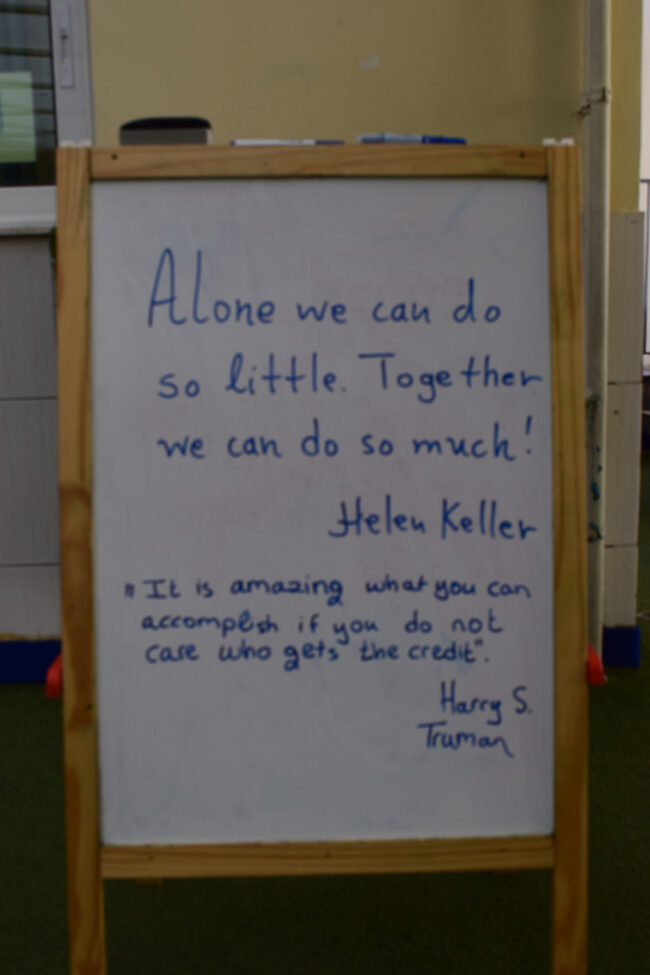 Alone we can do
so little. Together
we can do so much!
Helen Keller
"It is amazing what you can
accomplish if you do not
care who gets the credit".
Harry S.
Truman